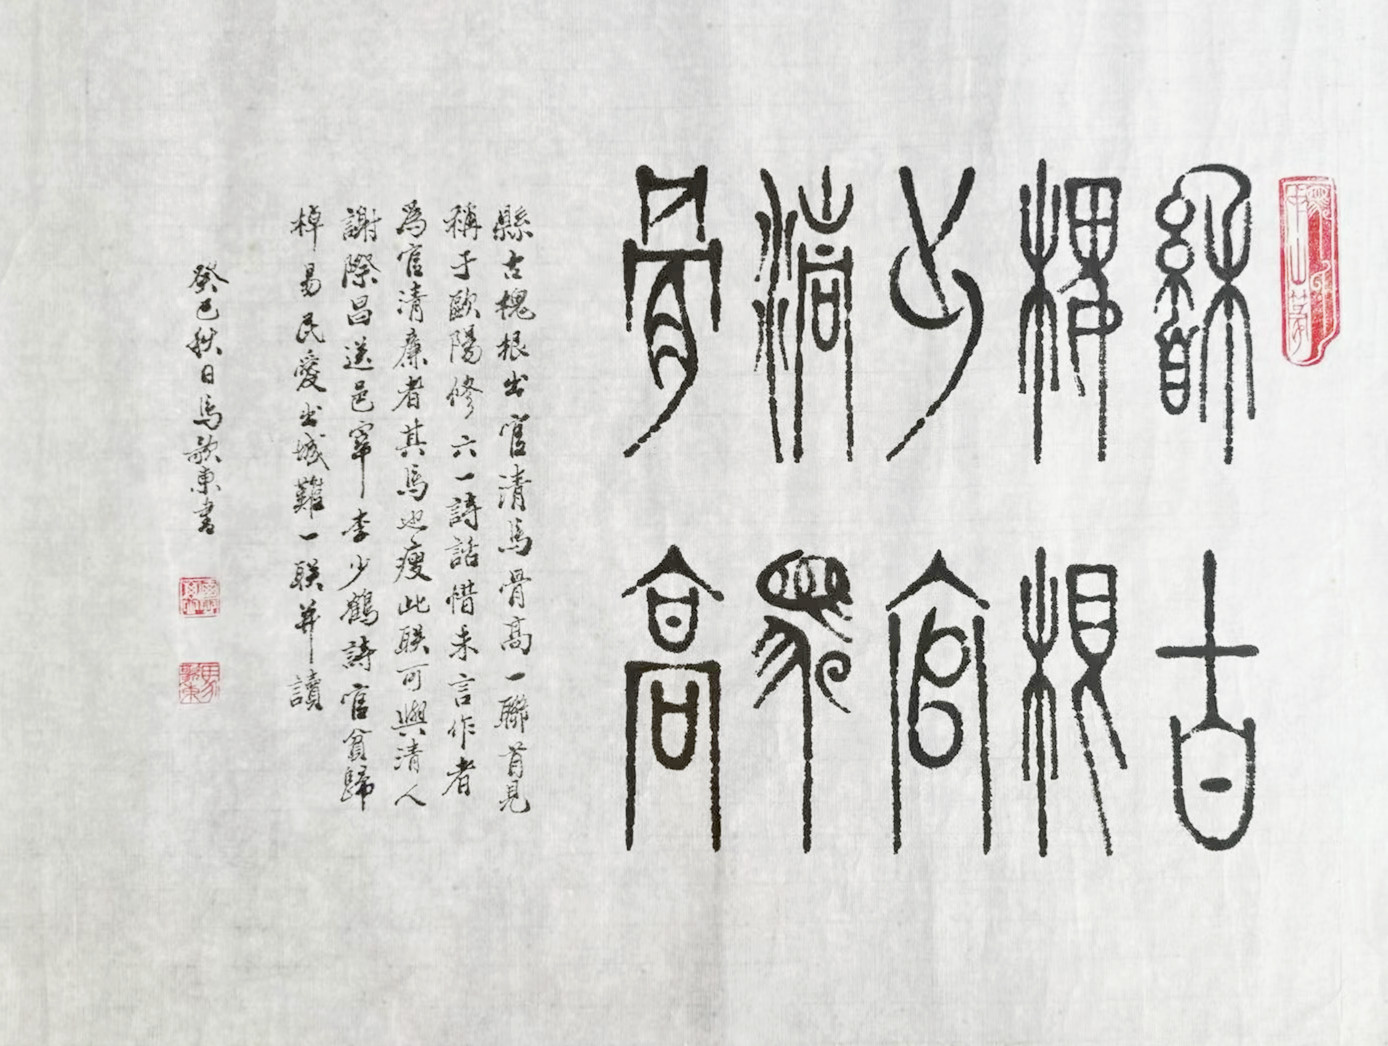 縣古
槐根
出官
清馬
骨高
縣古槐根出官清馬骨高一聯首見
稱于歐陽修六一詩話惜未言作者
爲官清廉者其馬也瘦此联可與清人
謝際昌送邑宰李少鶴詩官貧歸
棹易民愛出城難一联并讀
癸巳秋日馬歌東書